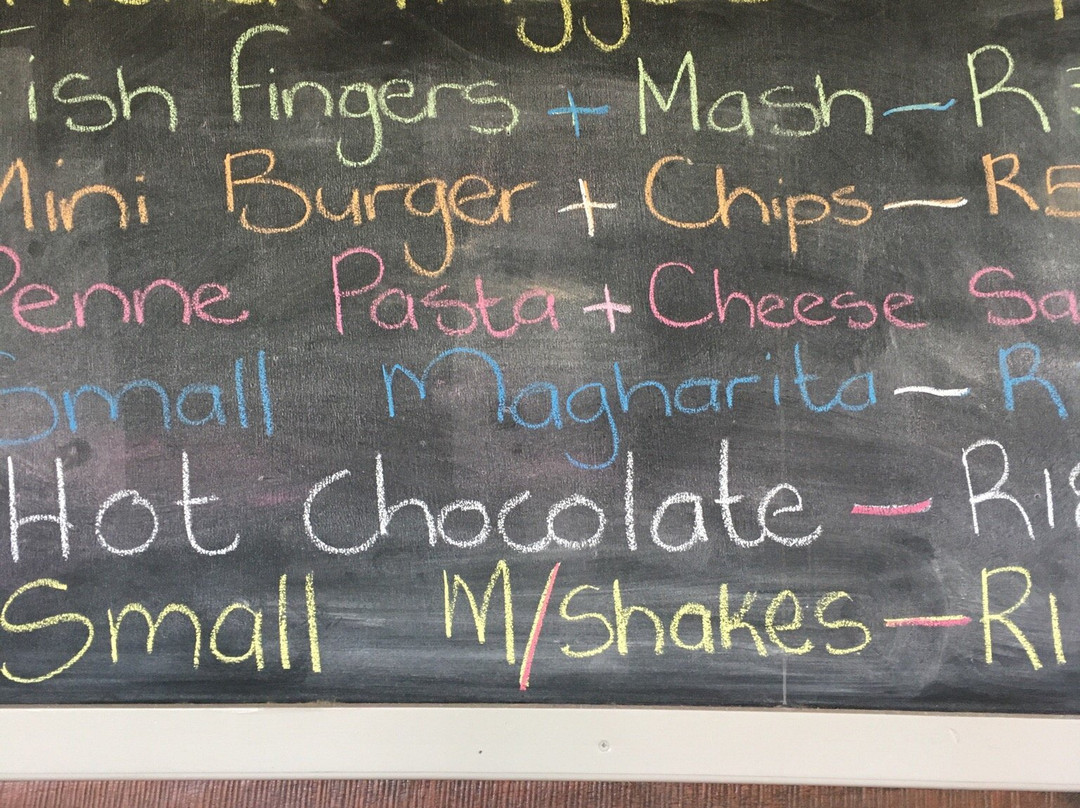 Fish Fingers + Mash - R3
Mini Burger + Chips - R5
Penne Pasta + Cheese Sa
Small Magharita - R
Hot Chocolate - R18
Small M/Shakes - R1